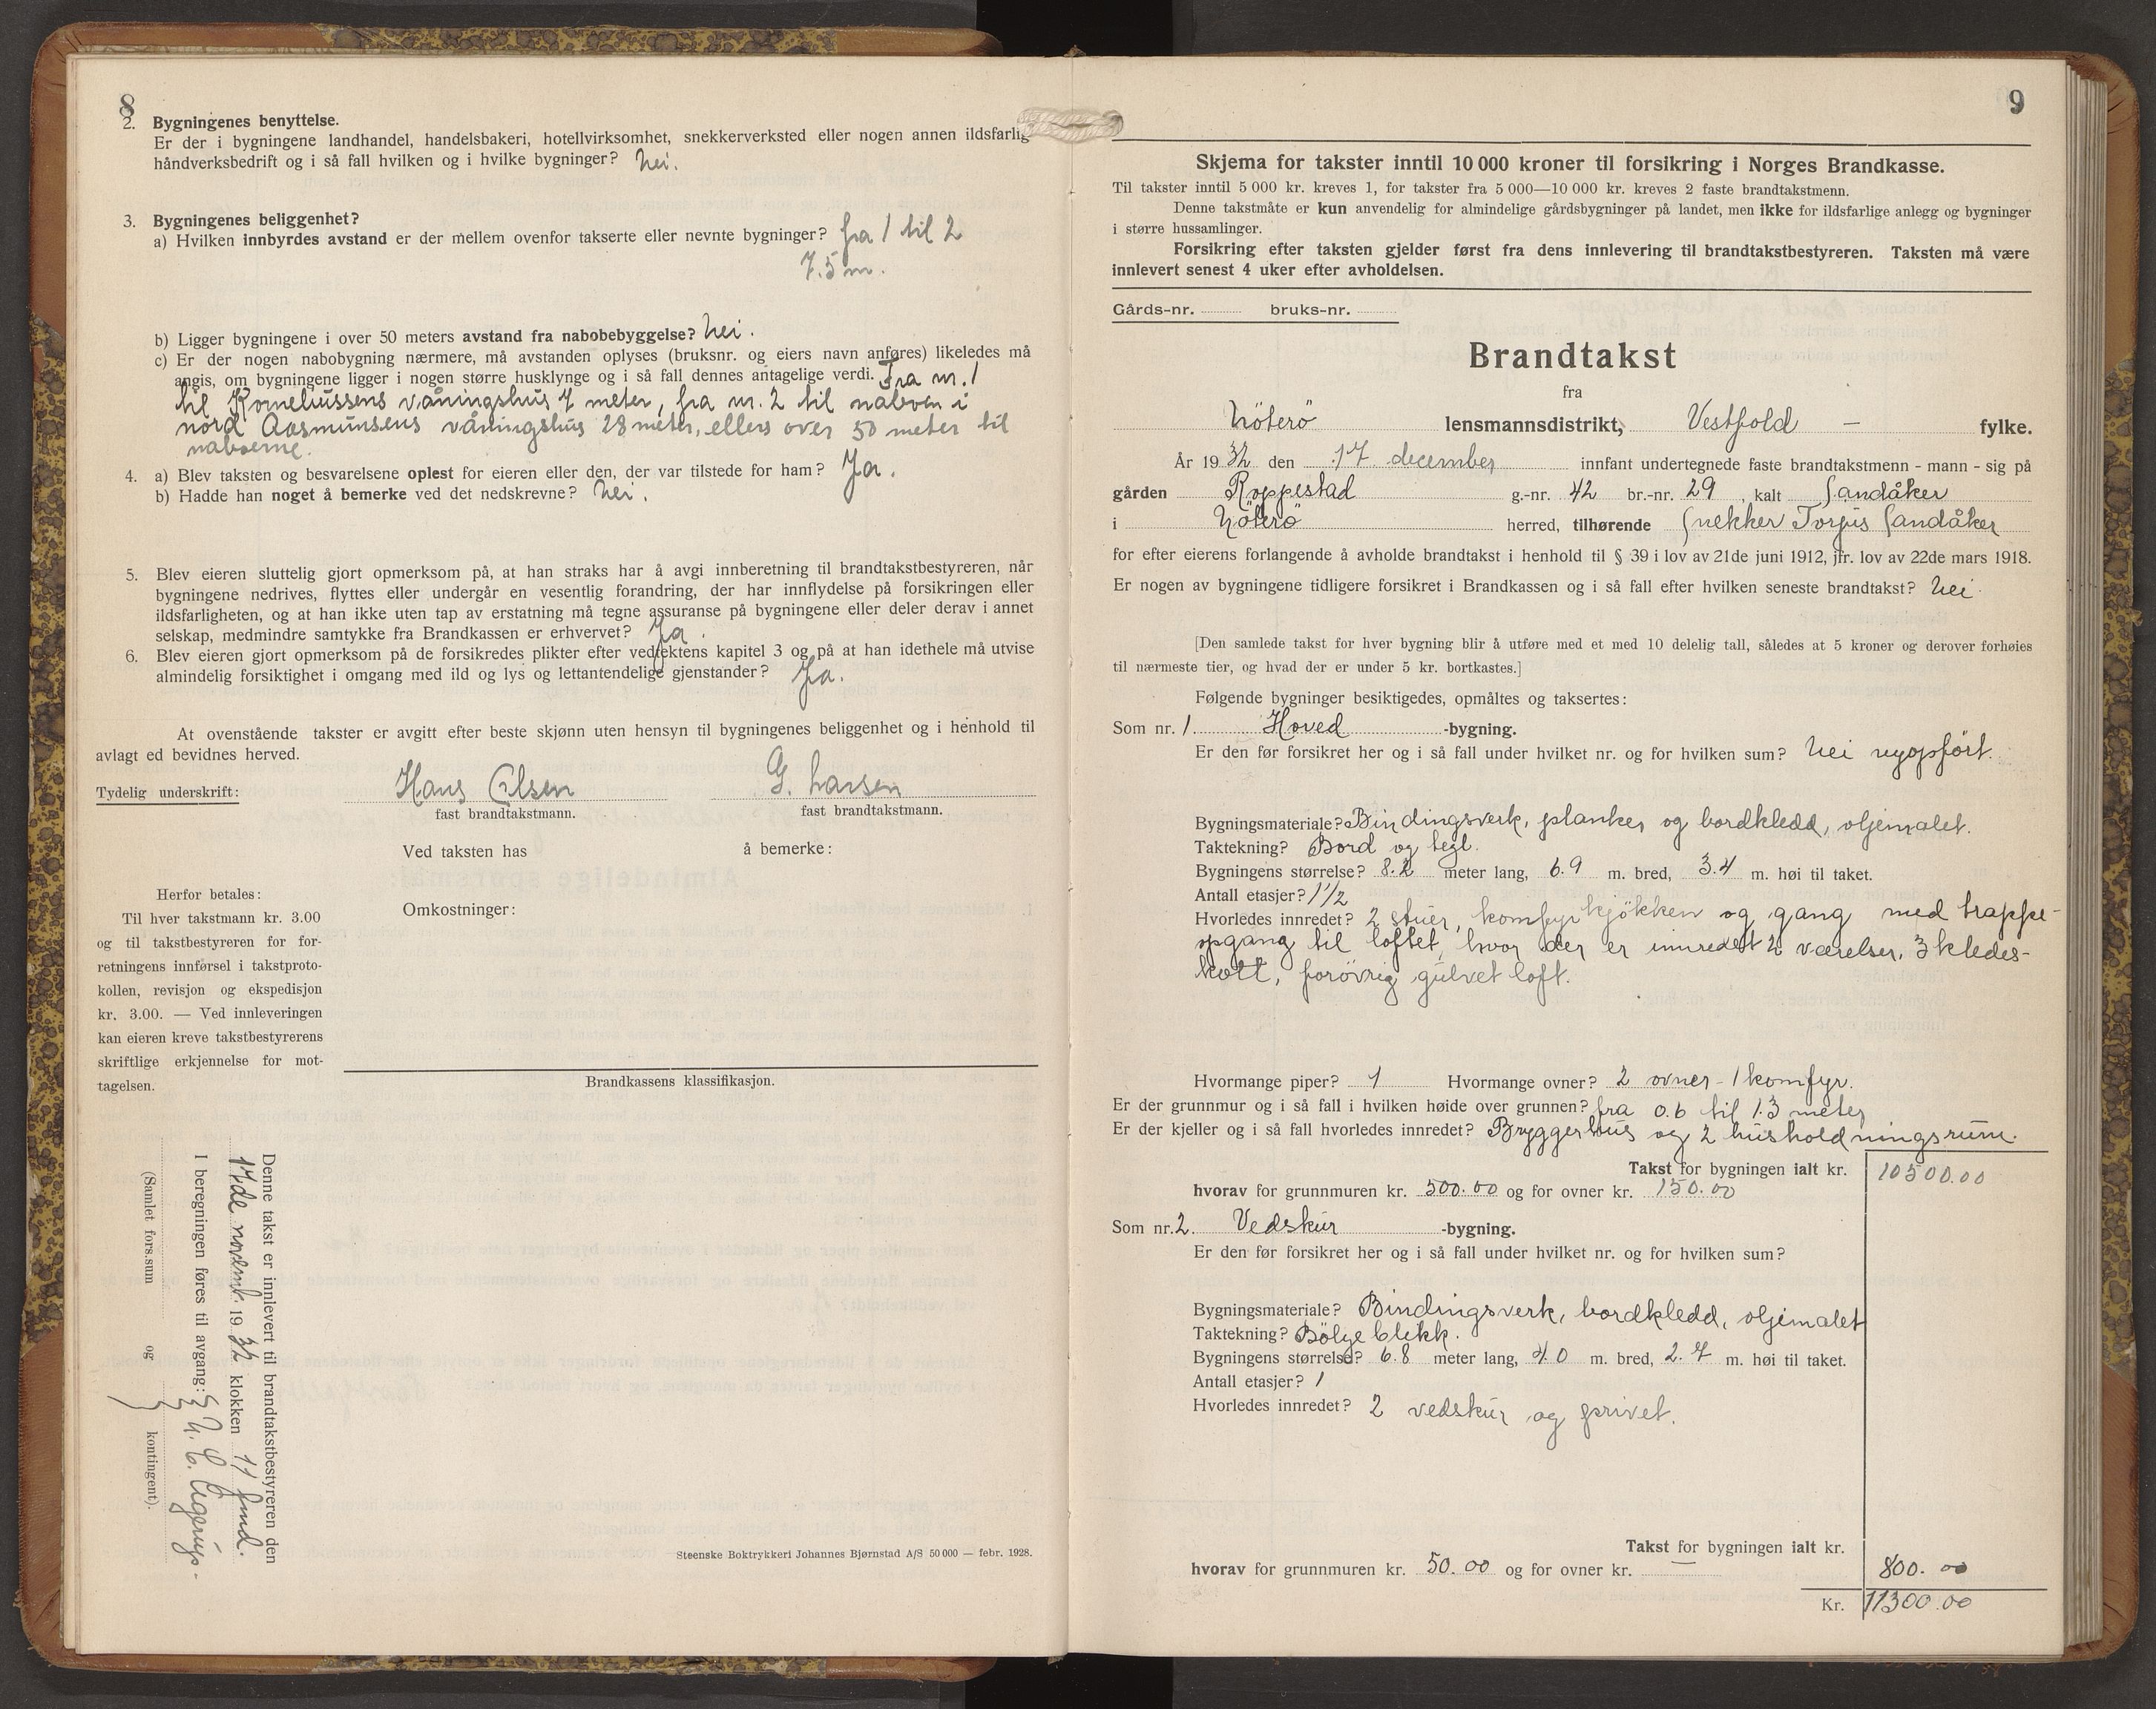 8
2. Bygningenes benyttelse.
Er der i bygningene landhandel, handelsbakeri, hotellvirksomhet, snekkerverksted eller nogen annen ildsfarlig
håndverksbedrift og i så fall hvilken og i hvilke bygninger? Nei.
3. Bygningenes beliggenhet?
a) Hvilken innbyrdes avstand er der mellem ovenfor takserte eller nevnte bygninger? fra 1 til 2
7.5 m.
b) Ligger bygningene i over 50 meters avstand fra nabobebyggelse? Nei.
c) Er der nogen nabobygning nærmere, må avstanden oplyses (bruksnr. og eiers navn anføres) likeledes må
angis, om bygningene ligger i nogen større husklynge og i så fall dennes antagelige verdi. Fra nr. 1
til Korneliussens våningshus 7 meter, fra nr. 2 til naboen i
nord Aasmunsens våningshus 28 meter, ellers over 50 meter til
naboerne.
4. a) Blev taksten og besvarelsene oplest for eieren eller den, der var tilstede for ham? Ja.
b) Hadde han noget å bemerke ved det nedskrevne? Nei.
5. Blev eieren sluttelig gjort opmerksom på, at han straks har å avgi innberetning til brandtakstbestyreren, når
bygningene nedrives, flyttes eller undergår en vesentlig forandring, der har innflydelse på forsikringen eller
ildsfarligheten, og at han ikke uten tap av erstatning må tegne assuranse på bygningene eller deler derav i annet
selskap, medmindre samtykke fra Brandkassen er erhvervet? Ja.
6. Blev eieren gjort opmerksom på de forsikredes plikter efter vedtektens kapitel 3 og på at han idethele må utvise
almindelig forsiktighet i omgang med ild og lys og lettantendelige gjenstander? Ja.
At ovenstående takster er avgitt efter beste skjønn uten hensyn til bygningenes beliggenhet og i henhold til
avlagt ed bevidnes herved.
Tydelig underskrift: Hans Olsen G. Larsen
fast brandtakstmann. fast brandtakstmann.
Ved taksten has å bemerke:
Omkostninger:
Herfor betales:
Til hver takstmann kr. 3.00
og til takstbestyreren for for-
retningens innførsel i takstproto-
kollen, revisjon og ekspedisjon
kr. 3.00. — Ved innleveringen
kan eieren kreve takstbestyrerens
skriftlige erkjennelse for mot-
tagelsen.
Brandkassens klassifikasjon.
Denne takst er innlevert til brandtakstbestyreren den
17de novemb. 1932 klokken 11 fmd.
I beregningen føres til avgang:
(Samlet fors.sum og kontingent).
Steenske Boktrykkeri Johannes Bjørnstad A/S 50 000 — febr. 1928.
9
Skjema for takster inntil 10 000 kroner til forsikring i Norges Brandkasse.
Til takster inntil 5 000 kr. kreves 1, for takster fra 5 000—10 000 kr. kreves 2 faste brandtakstmenn.
Denne takstmåte er kun anvendelig for almindelige gårdsbygninger på landet, men ikke for ildsfarlige anlegg og bygninger
i større hussamlinger.
Forsikring efter taksten gjelder først fra dens innlevering til brandtakstbestyreren. Taksten må være
innlevert senest 4 uker efter avholdelsen.
Gårds-nr. bruks-nr.
Brandtakst
fra
Nöterö lensmannsdistrikt, Vestfold — fylke.
År 1932 den 17 december innfant undertegnede faste brandtakstmenn - mann - sig på
gården Roppestad g.-nr. 42 br.-nr. 29, kalt Sandåker
i Nöterö herred, tilhørende Snekker Torjus Sandåker
for efter eierens forlangende å avholde brandtakst i henhold til § 39 i lov av 21de juni 1912, jfr. lov av 22de mars 1918.
Er nogen av bygningene tidligere forsikret i Brandkassen og i så fall efter hvilken seneste brandtakst? Nei
[Den samlede takst for hver bygning blir å utføre med et med 10 delelig tall, således at 5 kroner og derover forhøies
til nærmeste tier, og hvad der er under 5 kr. bortkastes.]
Følgende bygninger besiktigedes, opmåltes og taksertes:
Som nr. 1. Hoved -bygning.
Er den før forsikret her og i så fall under hvilket nr. og for hvilken sum? Nei nyopført.
Bygningsmateriale? Bindingsverk, planker og bordkledd, oljemalet.
Taktekning? Bord og tegl.
Bygningens størrelse? 8.2 meter lang, 6.9 m. bred, 3.4 m. høi til taket.
Antall etasjer? 1 1/2
Hvorledes innredet? 2 stuer, komfyrkjökken og gang med trappe-
opgang til loftet, hvor der er innredet 2 værelser, 3 kledes-
kott, forövrig gulvet loft.
Hvormange piper? 1 Hvormange ovner? 2 ovner - 1 komfyr.
Er der grunnmur og i så fall i hvilken høide over grunnen? fra 0.6 til 1.3 meter
Er der kjeller og i så fall hvorledes innredet? Bryggerhus og 2 husholdningsrum.
Takst for bygningen ialt kr. 10500.00
hvorav for grunnmuren kr. 500.00 og for ovner kr. 150.00
Som nr. 2. Vedskur -bygning.
Er den før forsikret her og i så fall under hvilket nr. og for hvilken sum?
Bygningsmateriale? Bindingsverk, bordkledd, oljemalet
Taktekning? Bölgeblikk.
Bygningens størrelse? 6.8 meter lang, 4.0 m. bred, 2.7 m. høi til taket.
Antall etasjer? 1
Hvorledes innredet? 2 vedskur og privet.
Takst for bygningen ialt kr.
hvorav for grunnmuren kr. 50.00 og for ovner kr. — 800.00
Kr. 11300.00